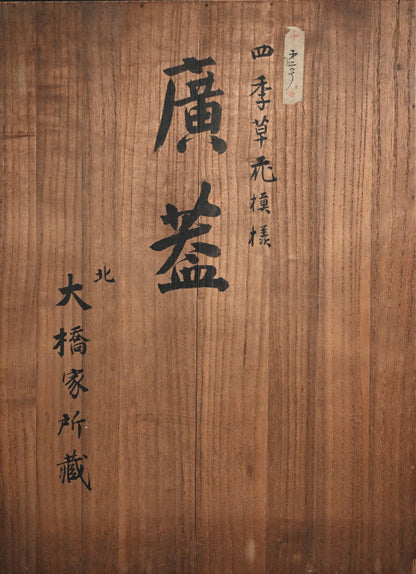 四季草花模様
廣蓋
北
大橋家所藏